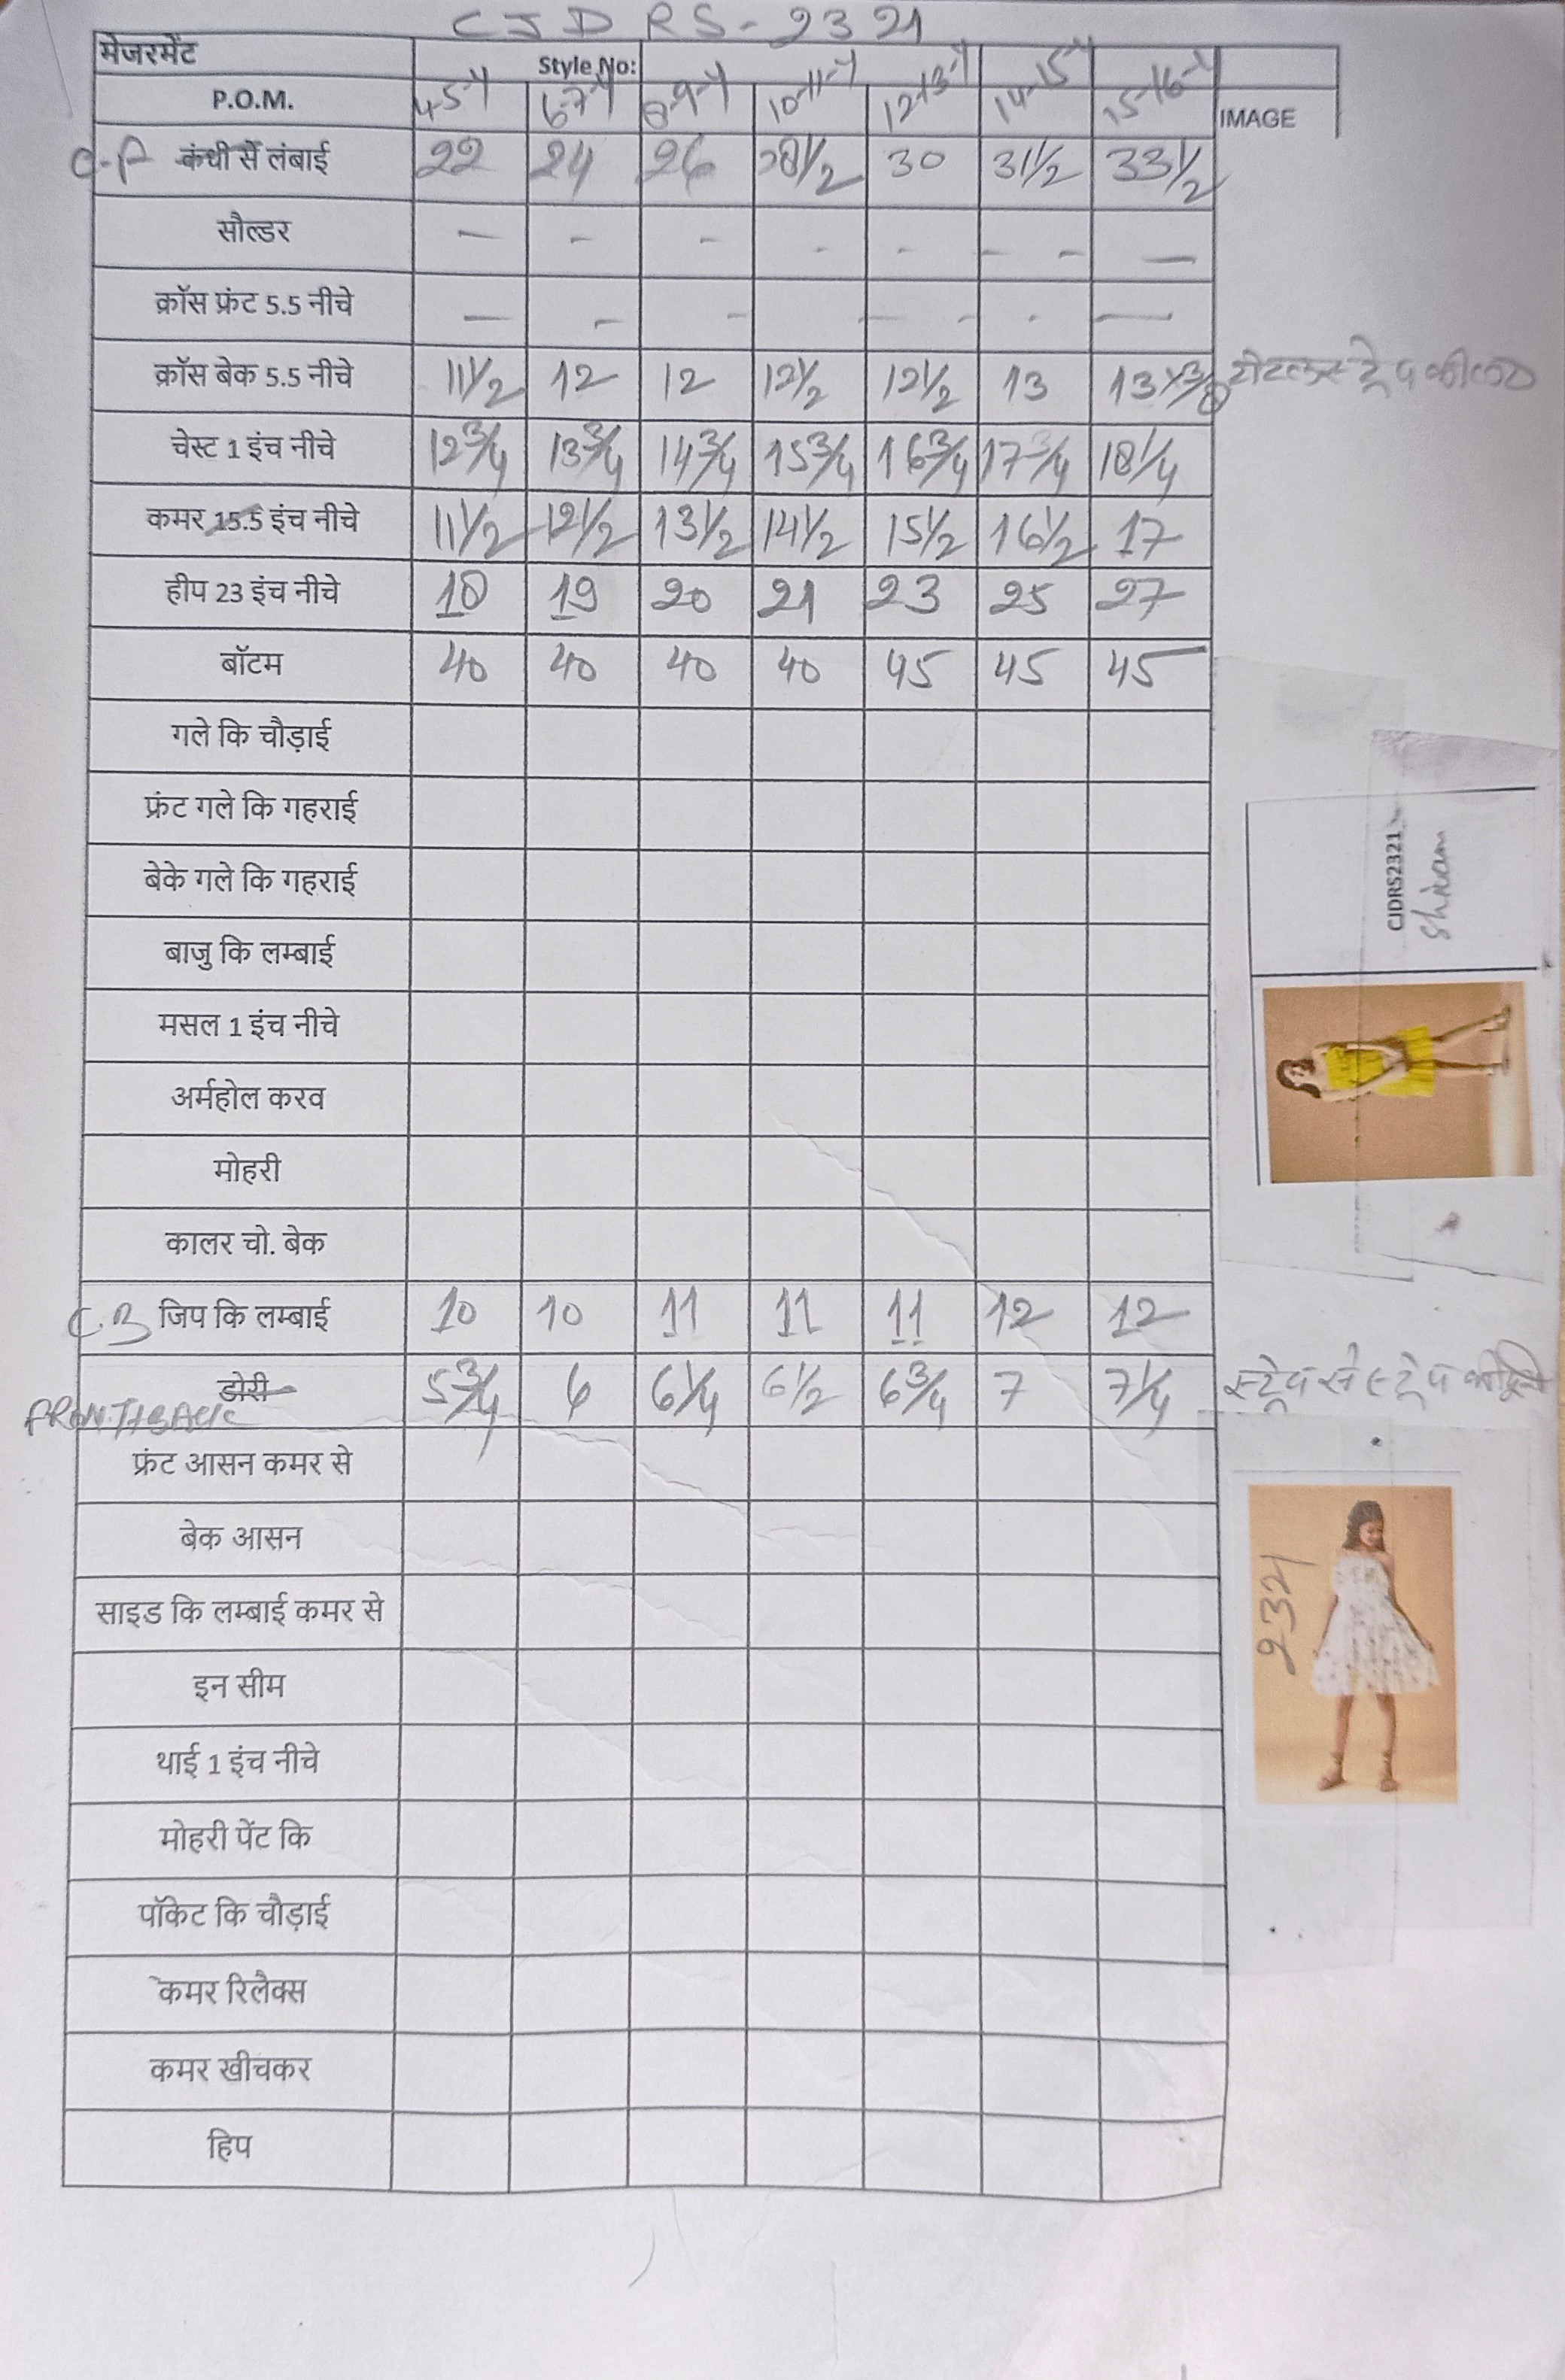 CJDRS-2321
मेजरमेंट Style No:
P.O.M. 4-5-Y 6-7-Y 8-9-Y 10-11-Y 12-13-Y 14-15-Y 15-16-Y IMAGE
C.F कंधी से लंबाई 22 24 26 28 1/2 30 31 1/2 33 1/2
सौल्डर — - - - - - - —
क्रॉस फ्रंट 5.5 नीचे — - - — - - —
क्रॉस बेक 5.5 नीचे 11 1/2 12 12 12 1/2 12 1/2 13 13 x 3/8 टोटल स्ट्रेप की
चेस्ट 1 इंच नीचे 12 3/4 13 3/4 14 3/4 15 3/4 16 3/4 17 3/4 18 1/4
कमर 15.5 इंच नीचे 11 1/2 12 1/2 13 1/2 14 1/2 15 1/2 16 1/2 17
हीप 23 इंच नीचे 18 19 20 21 23 25 27
बॉटम 40 40 40 40 45 45 45
गले कि चौड़ाई
फ्रंट गले कि गहराई
बेके गले कि गहराई
CJDRS2321
Shivam
बाजु कि लम्बाई
मसल 1 इंच नीचे
अर्महोल करव
मोहरी
कालर चो. बेक
C.B जिप कि लम्बाई 10 10 11 11 11 12 12
डोरी 5 3/4 6 6 1/4 6 1/2 6 3/4 7 7 1/4 स्ट्रेप से स्ट्रेप की दूरी
FRONT+BACK
फ्रंट आसन कमर से
बेक आसन
2321
साइड कि लम्बाई कमर से
इन सीम
थाई 1 इंच नीचे
मोहरी पेंट कि
पॉकेट कि चौड़ाई
कमर रिलैक्स
कमर खीचकर
हिप